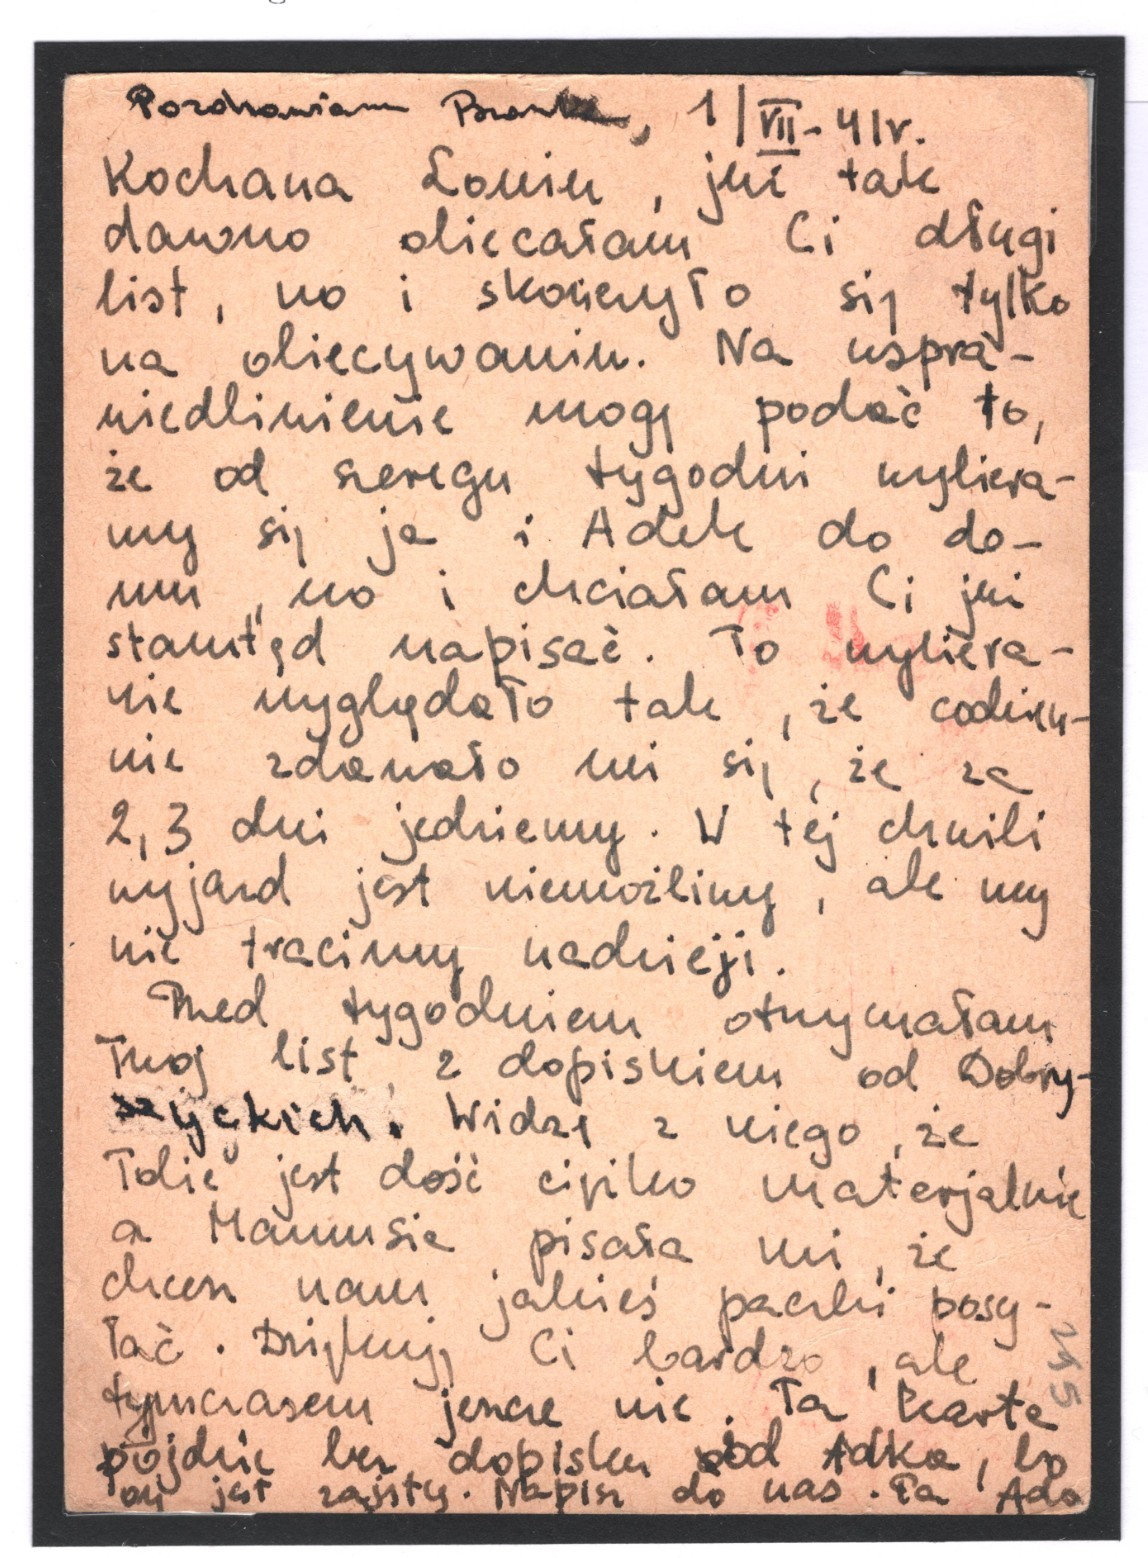 Pozdrawiam, 1/VII-41r.
Kochana Loniu, już tak
dawno obiecałam Ci długi
list, no i skończyło się tylko
na obiecywaniu. Na uspra-
wiedliwienie mogę podać to,
że od szeregu tygodni wybiera-
my się ja i Adek do do-
mu, no i chciałam Ci już
stamtąd napisać. To wybiera-
nie wyglądało tak, że codzien-
nie zdawało mi się, że za
2, 3 dni jedziemy. W tej chwili
wyjazd jest niemożliwy, ale my
nie tracimy nadzieji.
Przed tygodniem otrzymałam
Twoj list, z dopiskiem od Dobry-
szyckich. Widzę z niego, że
Tobie jest dość ciężko materjalnie
a Mamusia pisała mi, że
chcesz nam jakieś paczki posy-
łać. Dziękuję Ci bardzo, ale
tymczasem jeszcze nie. Ta karta
pójdzie bez dopisku od Adka, bo
on jest zajęty. Napisz do nas. Ta Ada
255